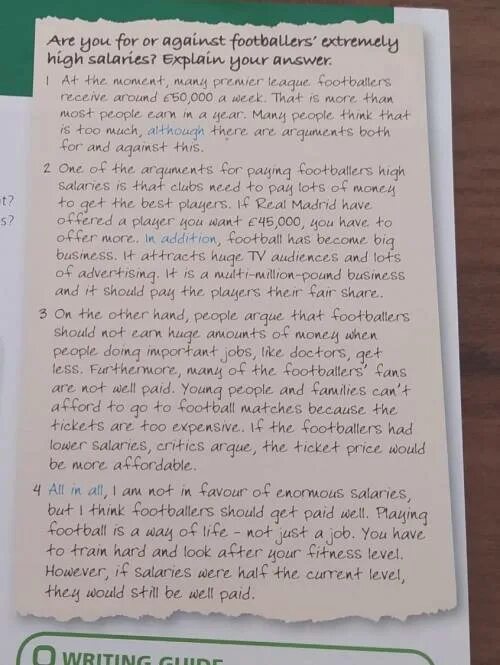 Are you for or against footballers' extremely
high salaries? Explain your answer.
1 At the moment, many premier league footballers
receive around £50,000 a week. That is more than
most people earn in a year. Many people think that
is too much, although there are arguments both
for and against this.
2 One of the arguments for paying footballers high
salaries is that clubs need to pay lots of money
to get the best players. If Real Madrid have
offered a player you want £45,000, you have to
offer more. In addition, football has become big
business. It attracts huge TV audiences and lots
of advertising. It is a multi-million-pound business
and it should pay the players their fair share.
3 On the other hand, people argue that footballers
should not earn huge amounts of money when
people doing important jobs, like doctors, get
less. Furthermore, many of the footballers' fans
are not well paid. Young people and families can't
afford to go to football matches because the
tickets are too expensive. If the footballers had
lower salaries, critics argue, the ticket price would
be more affordable.
4 All in all, I am not in favour of enormous salaries,
but I think footballers should get paid well. Playing
football is a way of life - not just a job. You have
to train hard and look after your fitness level.
However, if salaries were half the current level,
they would still be well paid.
WRITING GUIDE